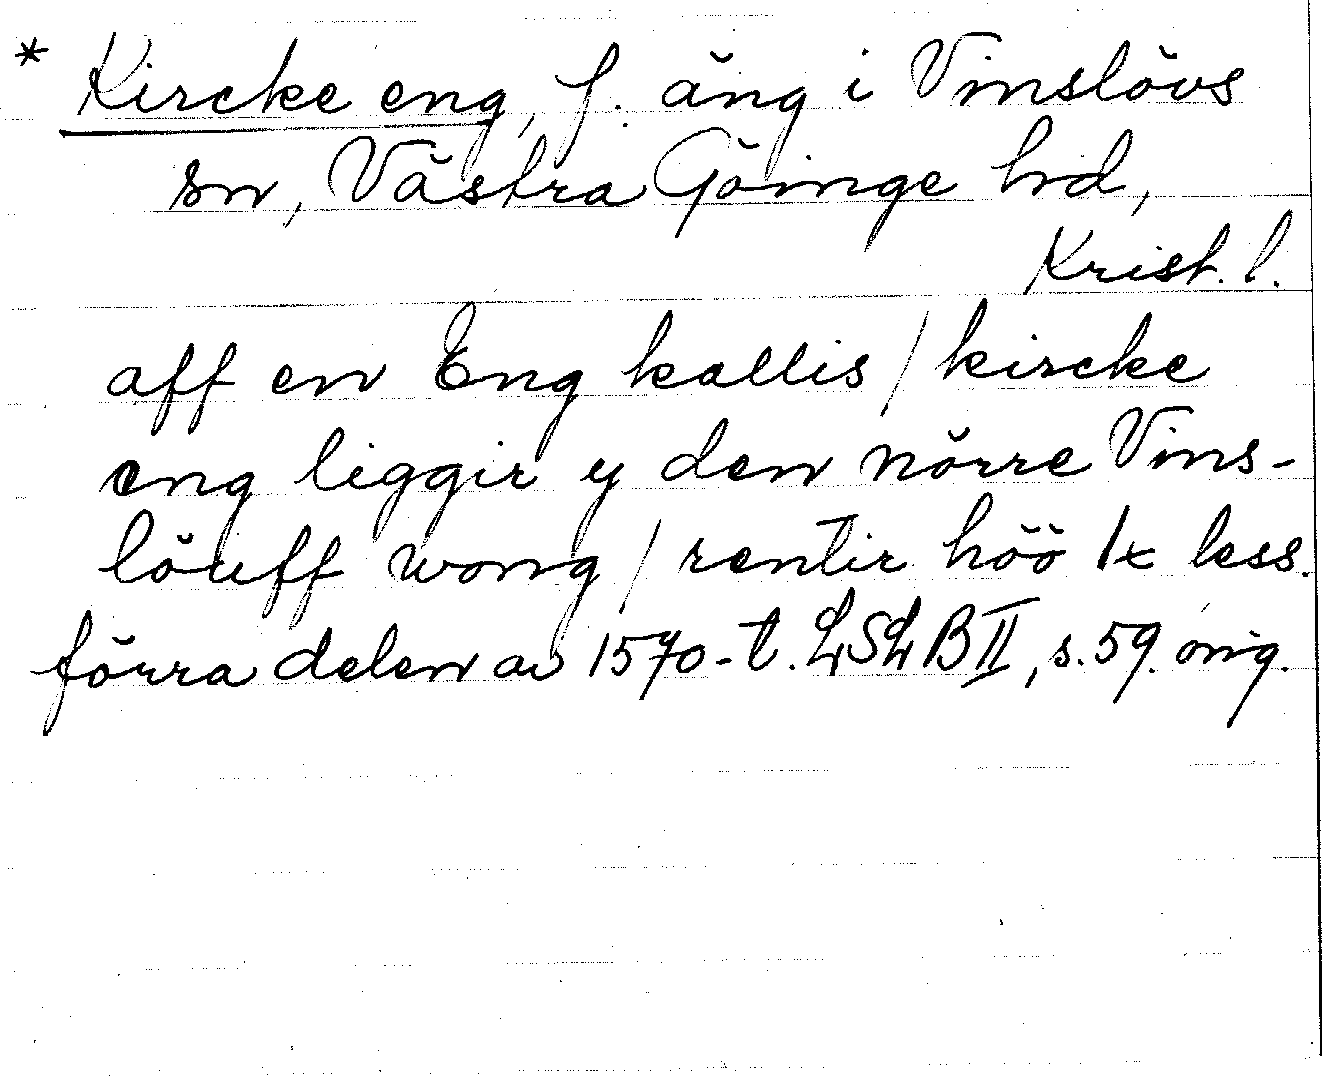 * Kircke eng, f. äng i Vinslövs
sn, Västra Göinge hd,
Krist. l.
aff en Eng kallis / kircke
eng liggir y den nörre Vins-
löuff wong / rentir höö 1x less.
förra delen av 1570-t. LSLB II, s. 59. orig.